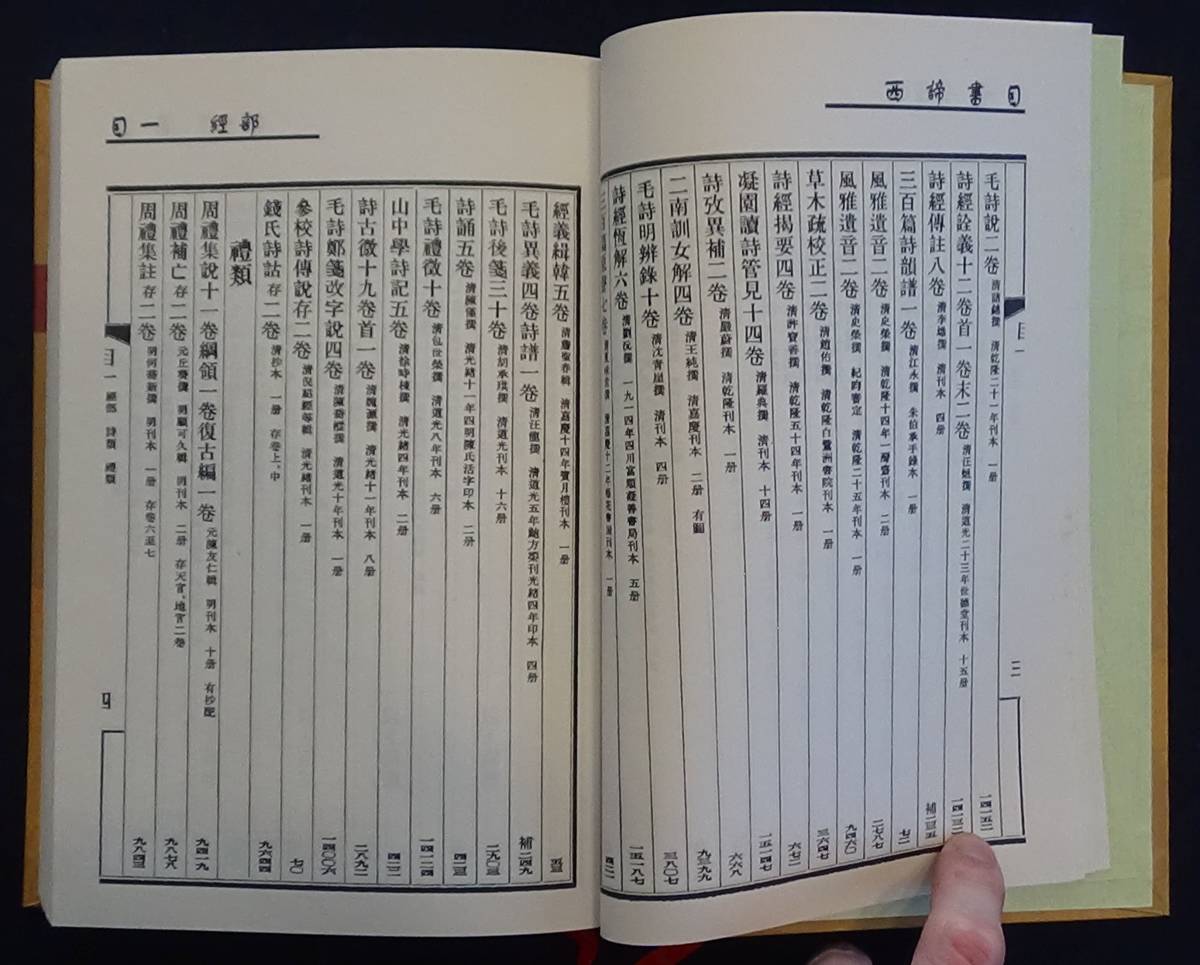 西諦書目
毛詩說二卷 清諸錦撰 清乾隆二十一年刊本 一册 一四一五二
詩經詮義十二卷首一卷末二卷 清汪烜撰 清道光二十三年世德堂刊本 十五册 一四一三二
詩經傳註八卷 清李塨撰 清刊本 四册 補二三五
三百篇詩韻譜一卷 清江永撰 朱伯承手錄本 一册 七二
風雅遺音二卷 清史榮撰 清乾隆十四年一灣齋刊本 二册 二七八七
風雅遺音二卷 清史榮撰 紀昀審定 清乾隆二十五年刊本 一册 九四六〇
草木疏校正二卷 清趙佑撰 清乾隆白鷺洲書院刊本 一册 三六四七
詩經揭要四卷 清許寶善撰 清乾隆五十四年刊本 一册 六七二
凝園讀詩管見十四卷 清羅典撰 清刊本 十四册 一五一四七
詩攷異補二卷 清嚴蔚撰 清乾隆刊本 一册 六六八
二南訓女解四卷 清王純撰 清嘉慶刊本 二册 有圖 九三九九
毛詩明辨錄十卷 清沈青崖撰 清刊本 四册 三八〇七
詩經恆解六卷 清劉沅撰 一九一四年四川富順凝善書局刊本 五册 一五一八七
目一
三
目一 經部
經義緝韓五卷 清嘉慶十四年賓月樓刊本 一册
毛詩異義四卷詩譜一卷 清汪龍撰 清道光五年鮑方榘刊光緒四年印本 四册 補二四九
毛詩後箋三十卷 清胡承珙撰 清道光刊本 十六册 二九〇三
詩誦五卷 清陳僅撰 清光緒十一年四明陳氏活字印本 二册 四二三
毛詩禮徵十卷 清包世榮撰 清道光八年刊本 六册 一四一二四
山中學詩記五卷 清徐時棟撰 清光緒四年刊本 二册 四二二
詩古微十九卷首一卷 清魏源撰 清光緒十一年刊本 八册 二八九二
毛詩鄭箋改字說四卷 清陳喬樅撰 清道光十年刊本 一册 一四〇〇六
參校詩傳說存二卷 清況超經等輯 清光緒刊本 一册 七〇
錢氏詩詁 存二卷 清抄本 一册 存卷上、中 九六四四
禮類
周禮集說十一卷綱領一卷復古編一卷 元陳友仁輯 明刊本 十册 有抄配 九四一九
周禮補亡 存二卷 元丘葵撰 明顧可久輯 明刊本 二册 存天官、地官二卷 九八七八
周禮集註 存二卷 明何喬新撰 明刊本 一册 存卷六至七 九八四三
目一 經部 詩類 禮類
四